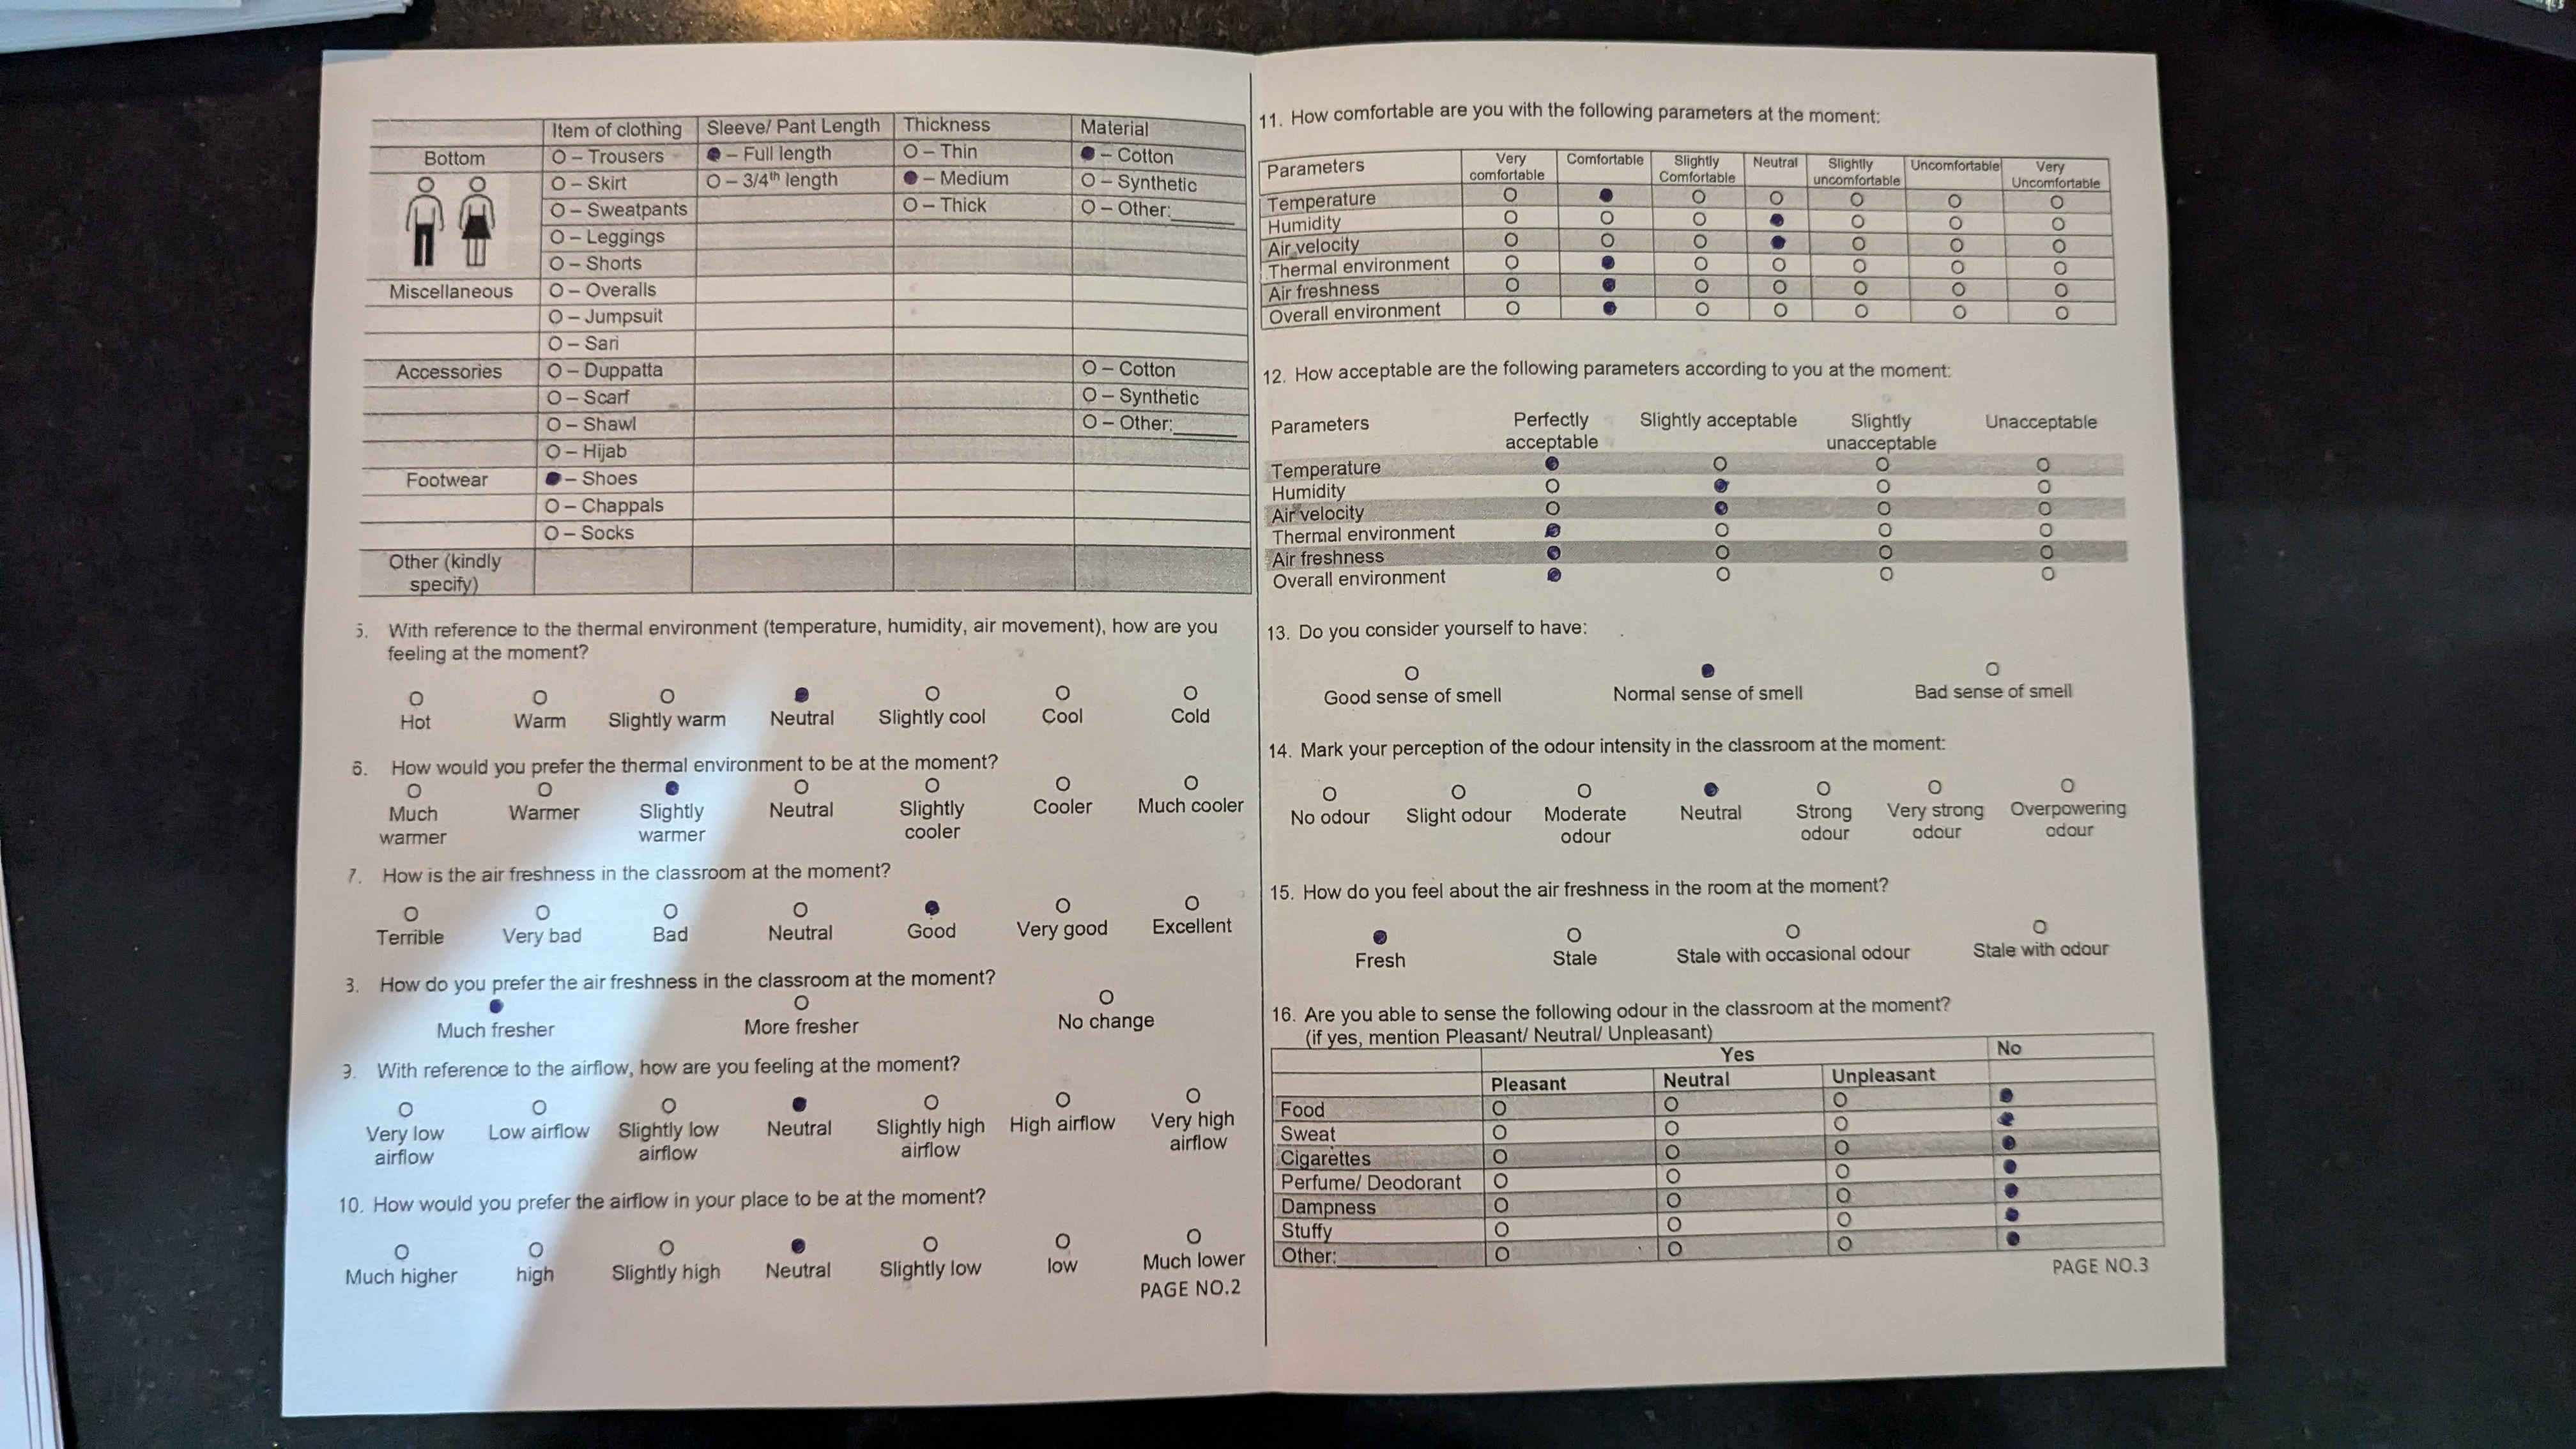 Item of clothing Sleeve/ Pant Length Thickness Material
Bottom O – Trousers ● – Full length O – Thin ● – Cotton
O – Skirt O – 3/4th length ● – Medium O – Synthetic
O – Sweatpants O – Thick O – Other:______
O – Leggings
O – Shorts
Miscellaneous O – Overalls
O – Jumpsuit
O – Sari
Accessories O – Duppatta O – Cotton
O – Scarf O – Synthetic
O – Shawl O – Other:______
O – Hijab
Footwear ● – Shoes
O – Chappals
O – Socks
Other (kindly
specify)
5. With reference to the thermal environment (temperature, humidity, air movement), how are you
feeling at the moment?
O O O ● O O O
Hot Warm Slightly warm Neutral Slightly cool Cool Cold
6. How would you prefer the thermal environment to be at the moment?
O O ● O O O O
Much Warmer Slightly Neutral Slightly Cooler Much cooler
warmer warmer cooler
7. How is the air freshness in the classroom at the moment?
O O O O ● O O
Terrible Very bad Bad Neutral Good Very good Excellent
3. How do you prefer the air freshness in the classroom at the moment?
● O O
Much fresher More fresher No change
9. With reference to the airflow, how are you feeling at the moment?
O O O ● O O O
Very low Low airflow Slightly low Neutral Slightly high High airflow Very high
airflow airflow airflow airflow
10. How would you prefer the airflow in your place to be at the moment?
O O O ● O O O
Much higher high Slightly high Neutral Slightly low low Much lower
PAGE NO.2
11. How comfortable are you with the following parameters at the moment:
Parameters Very Comfortable Slightly Neutral Slightly Uncomfortable Very
comfortable Comfortable uncomfortable Uncomfortable
Temperature O ● O O O O O
Humidity O O O ● O O O
Air velocity O O O ● O O O
Thermal environment O ● O O O O O
Air freshness O ● O O O O O
Overall environment O ● O O O O O
12. How acceptable are the following parameters according to you at the moment:
Parameters Perfectly Slightly acceptable Slightly Unacceptable
acceptable unacceptable
Temperature ● O O O
Humidity O ● O O
Air velocity O ● O O
Thermal environment ● O O O
Air freshness ● O O O
Overall environment ● O O O
13. Do you consider yourself to have:
O ● O
Good sense of smell Normal sense of smell Bad sense of smell
14. Mark your perception of the odour intensity in the classroom at the moment:
O O O ● O O O
No odour Slight odour Moderate Neutral Strong Very strong Overpowering
odour odour odour odour
15. How do you feel about the air freshness in the room at the moment?
● O O O
Fresh Stale Stale with occasional odour Stale with odour
16. Are you able to sense the following odour in the classroom at the moment?
(if yes, mention Pleasant/ Neutral/ Unpleasant)
Yes No
Pleasant Neutral Unpleasant
Food O O O ●
Sweat O O O ●
Cigarettes O O O ●
Perfume/ Deodorant O O O ●
Dampness O O O ●
Stuffy O O O ●
Other:________ O O O ●
PAGE NO.3